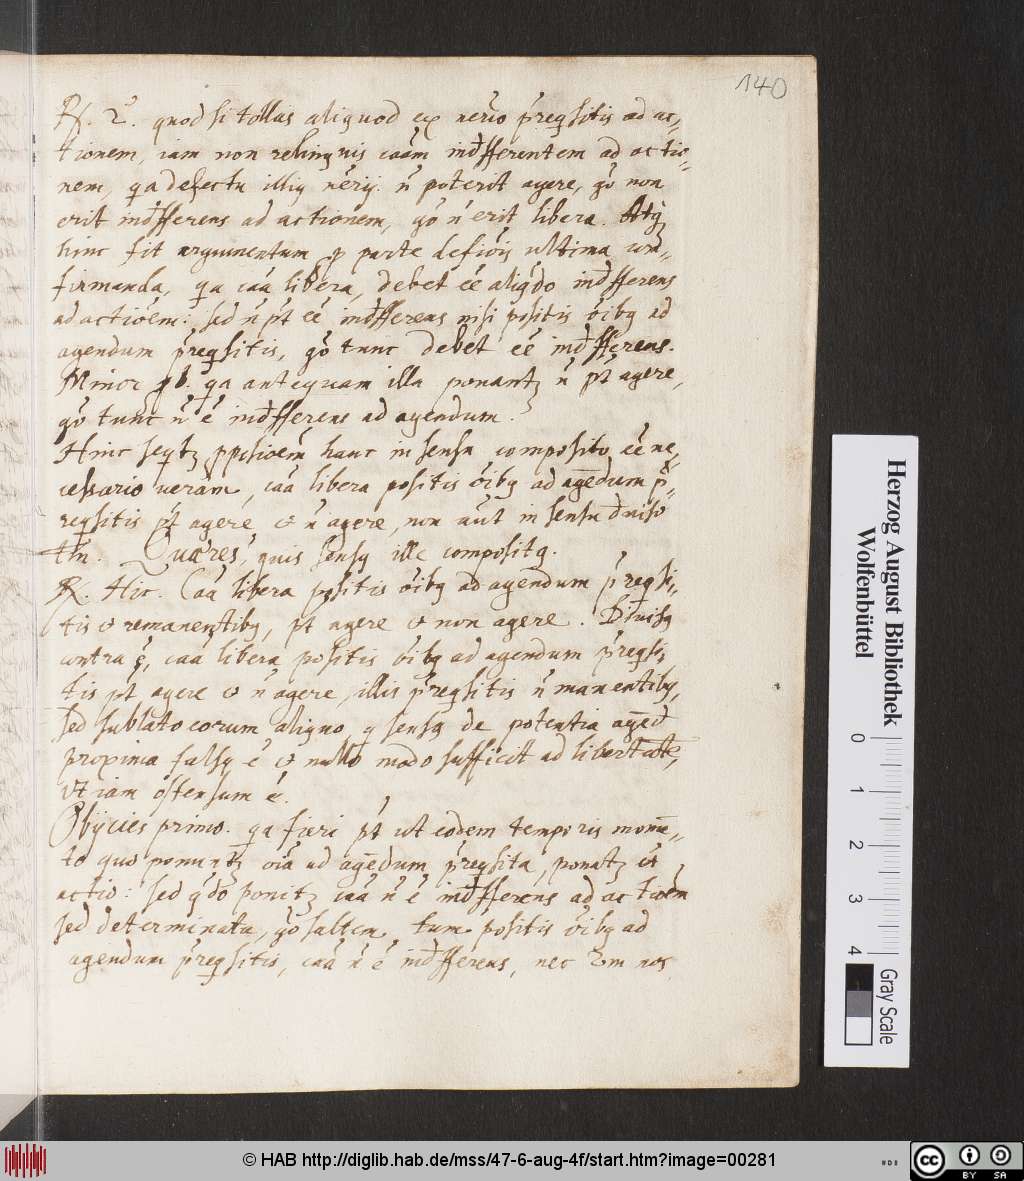 140
R. 2. quod si tollas aliquod ex nẽrio p̃reqsitis ad ac-
tionem, iam non relinquis caãm indifferentem ad actio-
nem, qa defectu illiq nẽrij ñ poterit agere, gõ non
erit indifferens ad actionem, gõ ñ erit libera. Atq
hinc fit argumentum p parte defiõis ultima con-
firmanda, qa caã libera, debet eẽ aliqdo indifferens
ad actiõem: sed ñ pt eẽ indifferens nisi positis oĩbq ad
agendum p̃reqsitis, gõ tunc debet eẽ indifferens.
Minor pb. qa antequam illa ponantz ñ pt agere,
gõ tunc ñ ẽ indifferens ad agendum.
Hinc seqtz ppõsioẽm hanc in sensu composito eẽ ne-
cessario veram, caã libera positis oĩbq ad agẽdum p̃-
reqsitis pt agere et ñ agere, non aũt in sensu diuiso
tm. Quæres, quis sensq ille compositq.
R. Hic. Caã libera positis oĩbq ad agendum p̃reqsi-
tis et remanentibq, pt agere et non agere. Diuisq
contra ẽ, caã libera positis oĩbq ad agendum p̃reqsi-
tis pt agere et ñ agere, illis p̃reqsitis ñ manentibq,
sed sublato eorum aliquo, q sensq de potentia agẽd
proxima falsq ẽ et nullo modo sufficit ad libertatẽ,
vt iam ostensum ẽ.
Obijcies primo. qa fieri pt ut eodem temporis momẽ-
to quo ponuntz oĩa ad agẽdum p̃reqsita, ponatz et
actio: sed qdo ponitz caã ñ ẽ indifferens ad actioẽm
sed determinata, gõ saltem tum positis oĩbq ad
agendum p̃reqsitis, caã ñ ẽ indifferens, nec Em nos
Herzog August Bibliothek
Wolfenbüttel
0 1 2 3 4
Gray Scale
© HAB http://diglib.hab.de/mss/47-6-aug-4f/start.htm?image=00281
cc BY SA